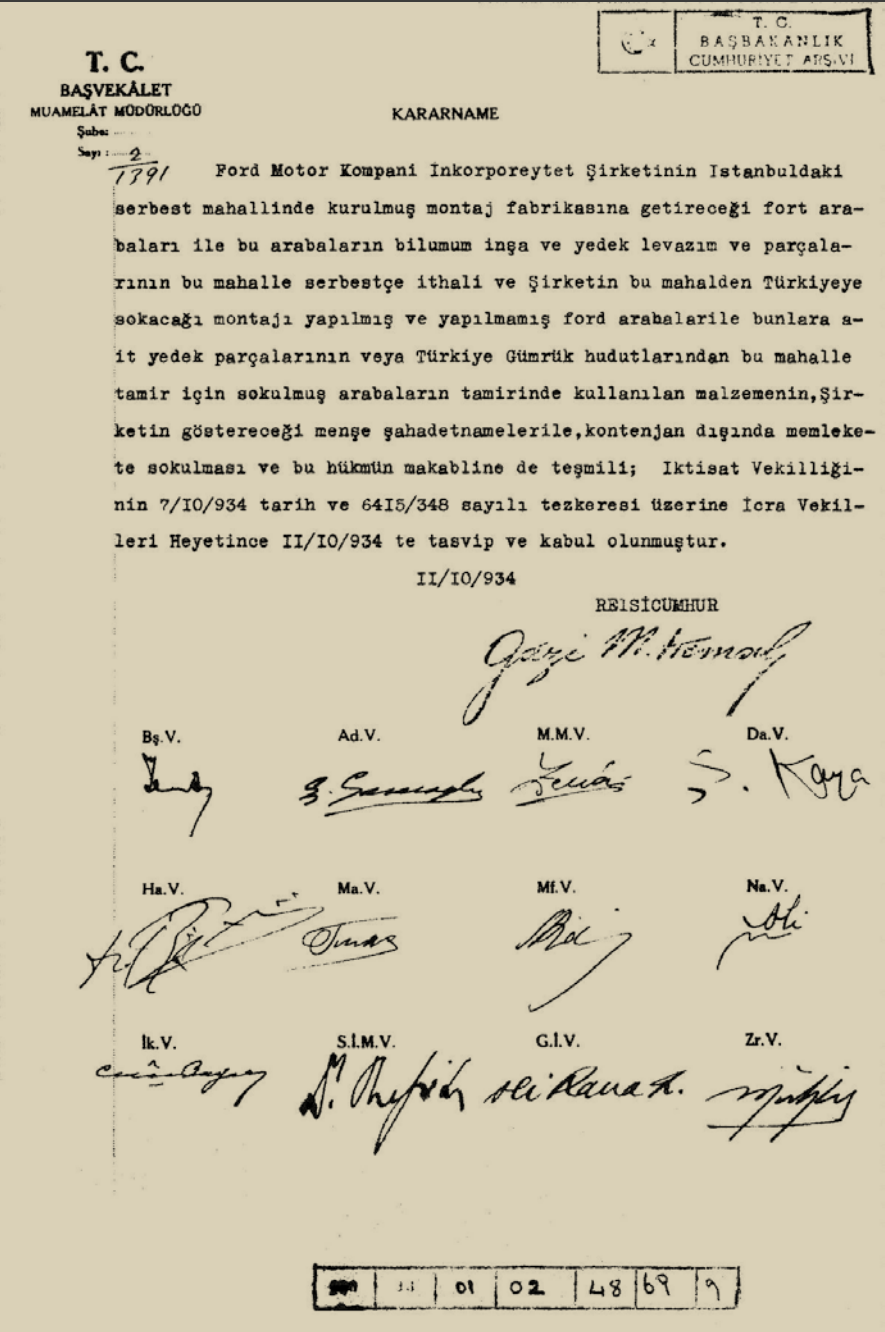 T. C.
BAŞBAKANLIK
CUMHURİYET ARŞİVİ
T. C.
BAŞVEKÂLET
MUAMELÂT MÜDÜRLÜĞÜ
Şube:
Sayı : 2
1391
KARARNAME
Ford Motor Kompani İnkorporeytet Şirketinin Istanbuldaki
serbest mahallinde kurulmuş montaj fabrikasına getireceği fort ara-
baları ile bu arabaların bilumum inşa ve yedek levazım ve parçala-
rının bu mahalle serbestçe ithali ve Şirketin bu mahalden Türkiyeye
sokacağı montajı yapılmış ve yapılmamış ford arabalarile bunlara a-
it yedek parçalarının veya Türkiye Gümrük hudutlarından bu mahalle
tamir için sokulmuş arabaların tamirinde kullanılan malzemenin,Şir-
ketin göstereceği menşe şahadetnamelerile,kontenjan dışında memleke-
te sokulması ve bu hükmün makabline de teşmili; Iktisat Vekilliği-
nin 7/I0/934 tarih ve 64I5/348 sayılı tezkeresi üzerine İcra Vekil-
leri Heyetince II/I0/934 te tasvip ve kabul olunmuştur.
II/I0/934
REİSİCUMHUR
Gazi M. Kemal
Bş.V. Ad.V. M.M.V. Da.V.
Ş. Kaya
Ha.V. Ma.V. Mf.V. Na.V.
Ali
İk.V. S.İ.M.V. G.İ.V. Zr.V.
Dr. Refik Ali Rana
01 02 48 69 9